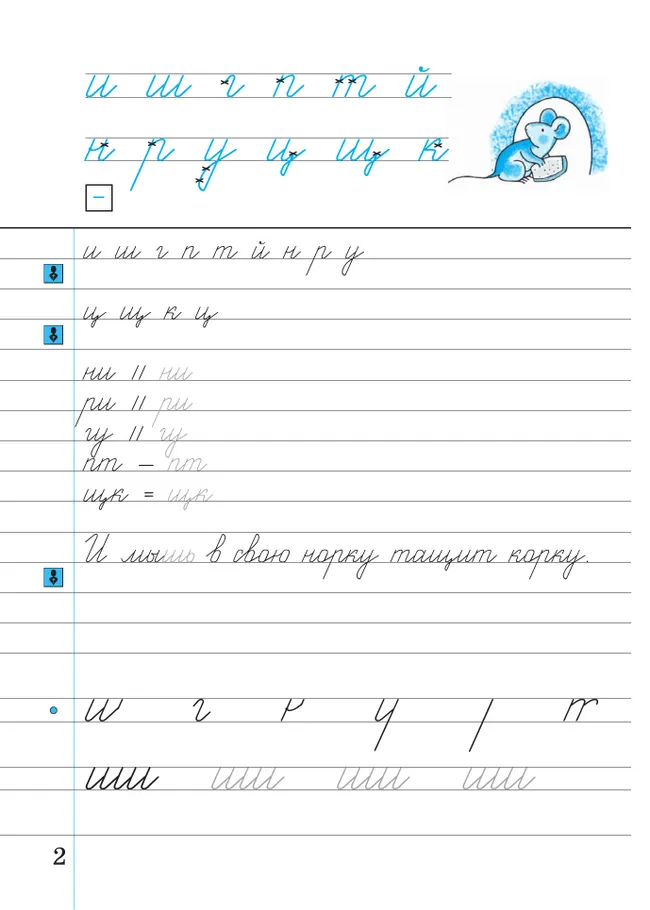 и ш г п т й
н р у ц щ к
–
и ш г п т й н р у
ц щ к ц
ни // ни
ри // ри
гу // гу
пт – пт
щк = щк
И мышь в свою норку тащит корку.
иии иии иии иии
2